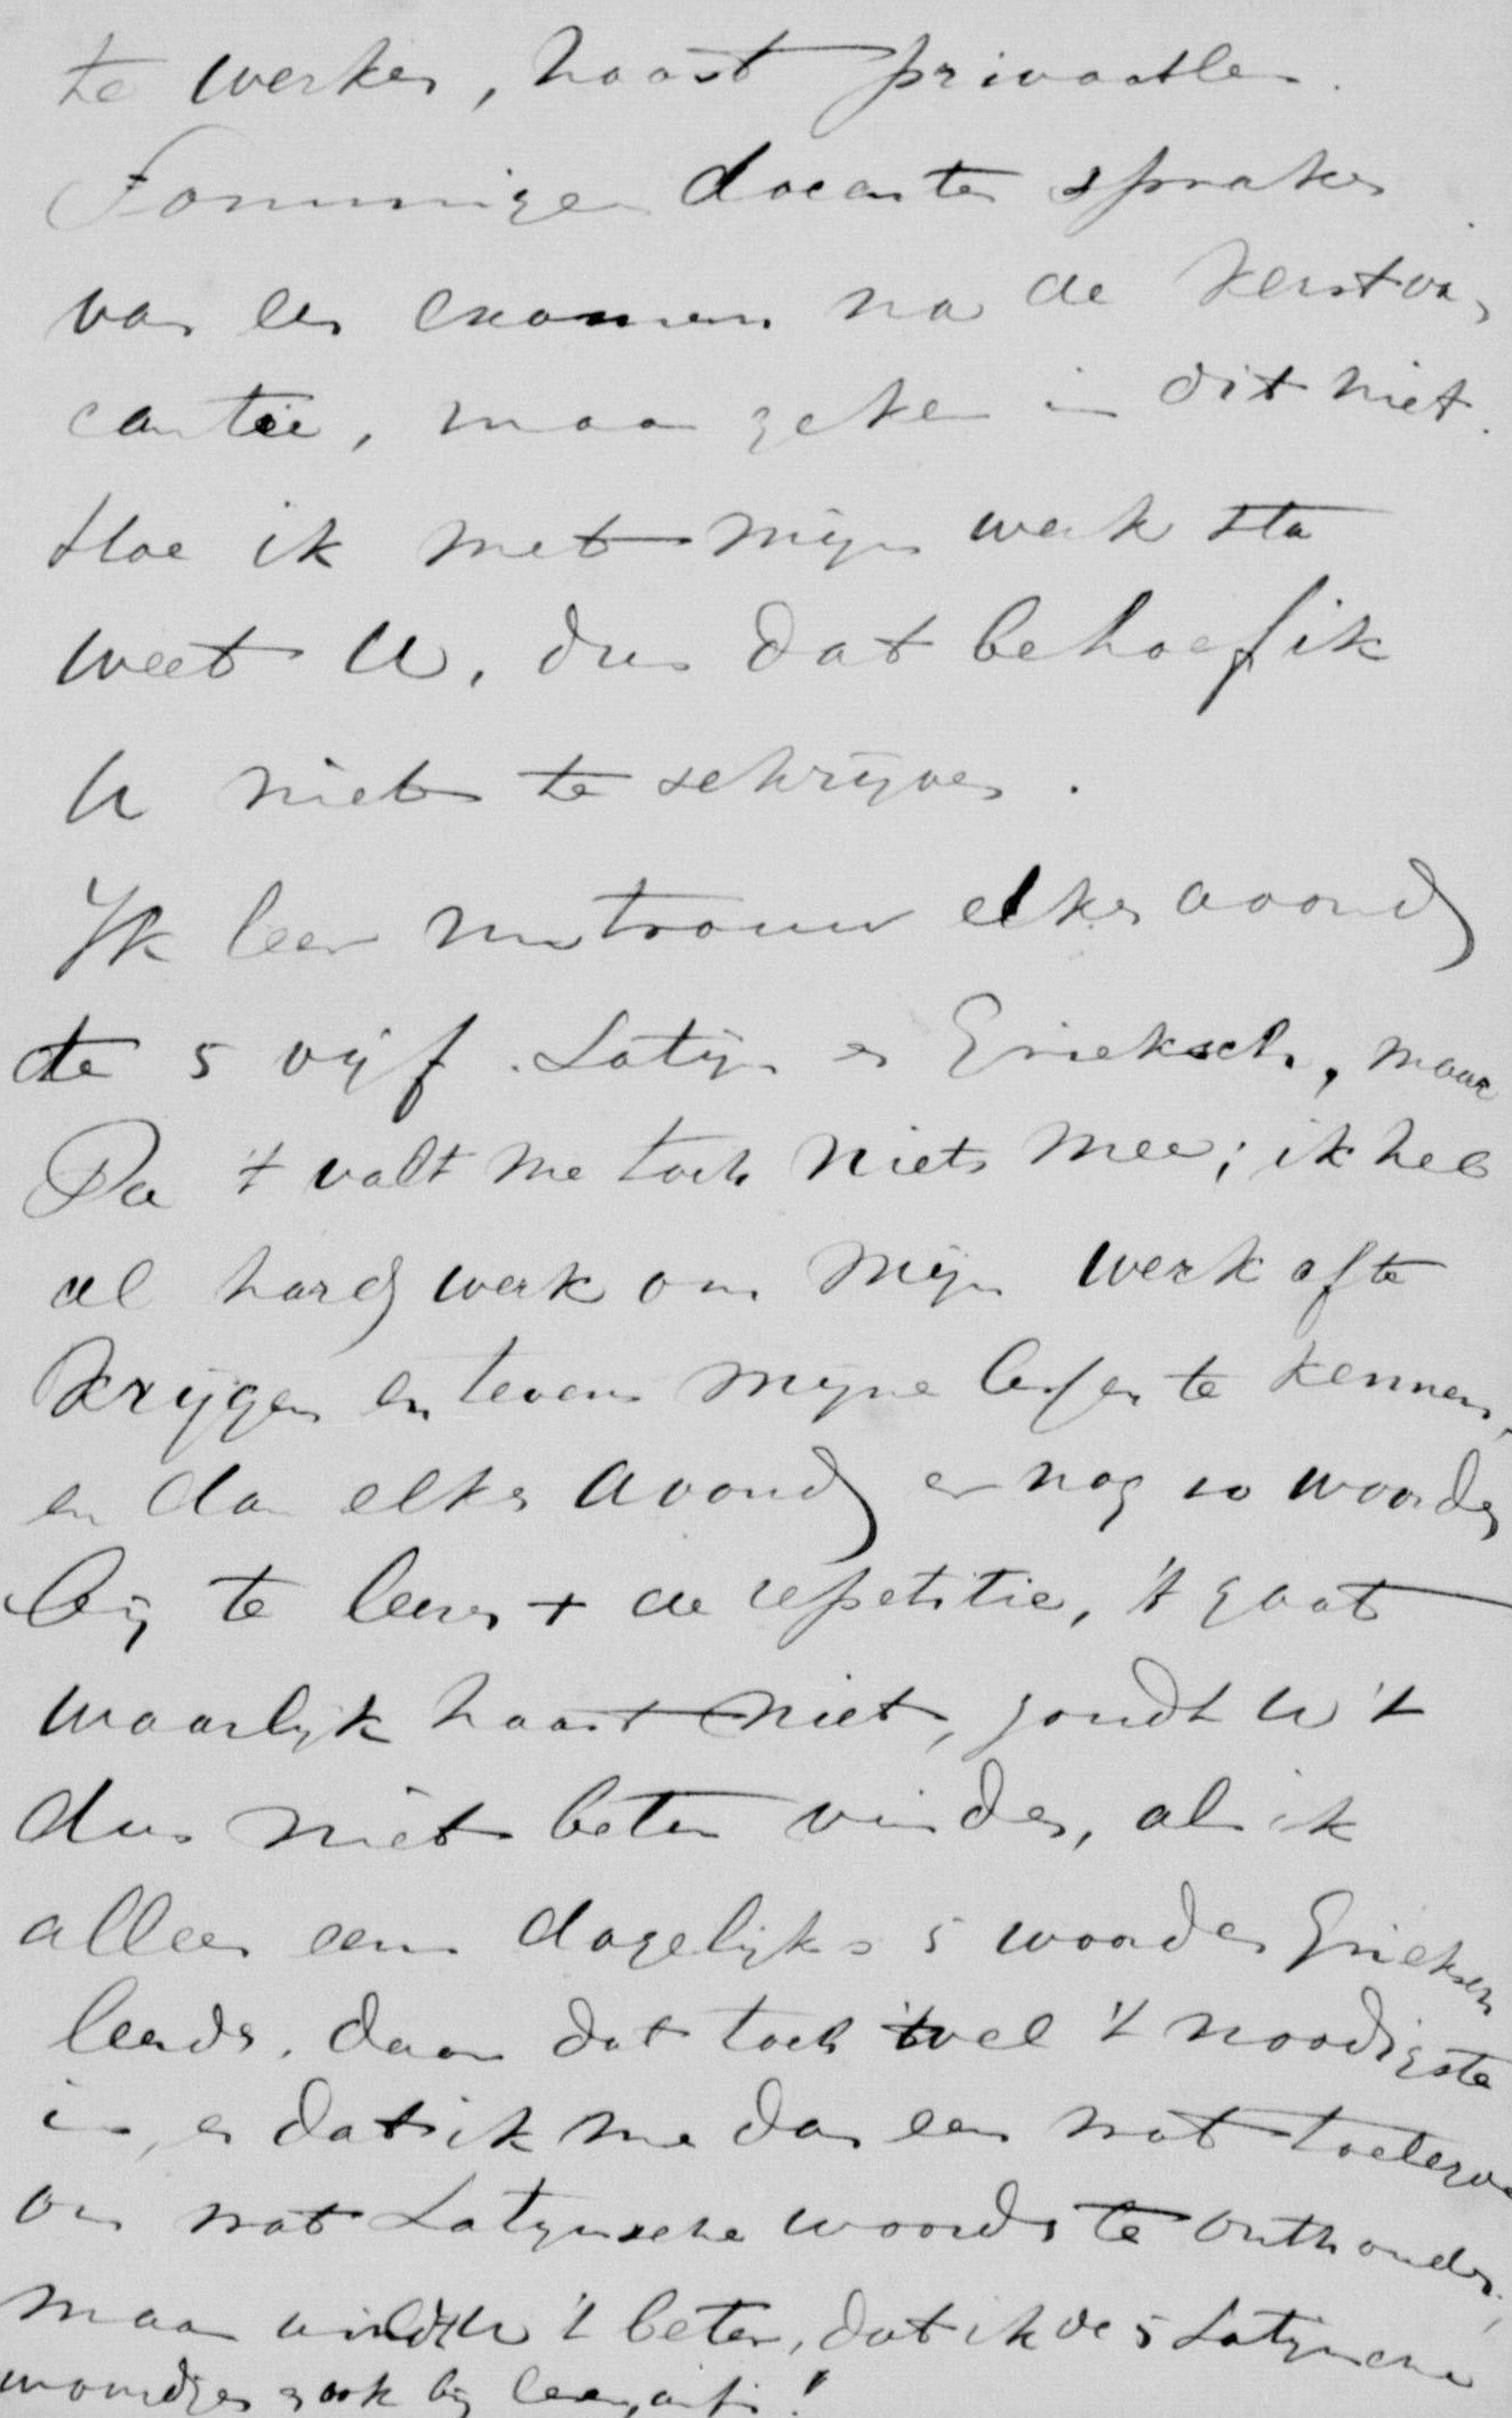 te werken, haast privaatles.
Sommigen docenten spraken
van een examen na de kerstva-
cantie, maar zeker is dit niet.
Hoe ik met mijn werk sta
weet U, dus dat behoef ik
U niet te schrijven.
Ik leer nu trouw elken avond
de 5 vijf Latijn en Grieksch, maar
Pa 't valt me toch niets mee; ik heb
al hard werk om mijn werk af te
krijgen en tevens mijne lessen te kennen,
en dan elken avond er nog 10 woorden
bij te leeren + de repetitie, 't gaat
waarlijk haast niet, zoudt U 't
dus niet beter vinden, als ik
alleen eens dagelijks 5 woorden Grieksch
leerde, daar dat toch wel 't noodigste
is, en dat ik me dan een wat toelegde
om wat Latijnsche woorden te onthouden,
maar vindt U 't beter, dat ik de 5 Latijnsche
woordjes er ook bij leer,!